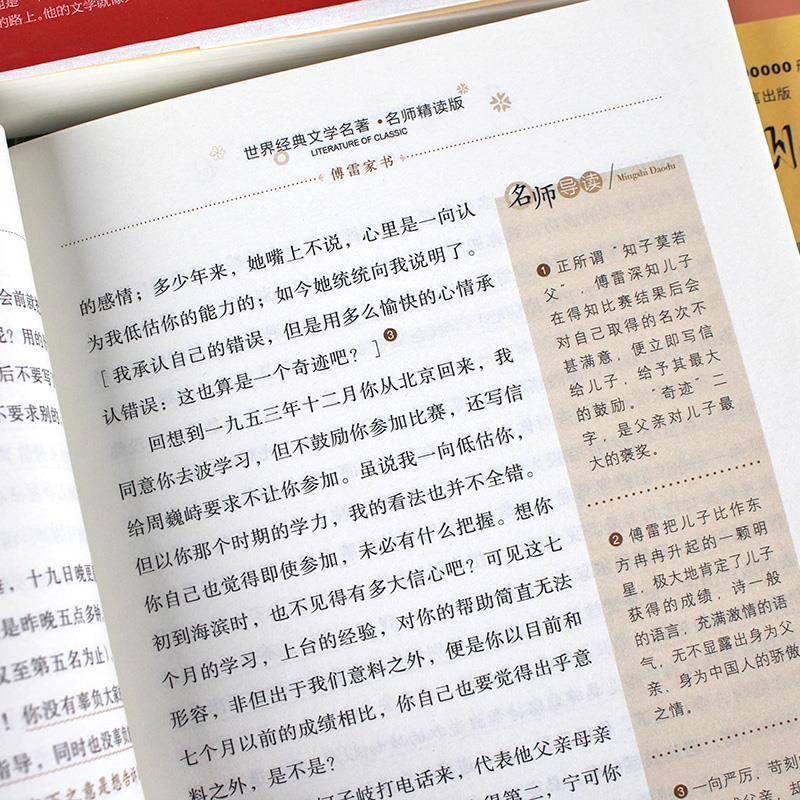 的路上。他的文学就像
0000
言出版
世界经典文学名著·名师精读版
LITERATURE OF CLASSIC
傅雷家书
的感情；多少年来，她嘴上不说，心里是一向认
为我低估你的能力的；如今她统统向我说明了。
[我承认自己的错误，但是用多么愉快的心情承
认错误：这也算是一个奇迹吧？]❸
回想到一九五三年十二月你从北京回来，我
同意你去波学习，但不鼓励你参加比赛，还写信
给周巍峙要求不让你参加。虽说我一向低估你，
但以你那个时期的学力，我的看法也并不全错。
你自己也觉得即使参加，未必有什么把握。想你
初到海滨时，也不见得有多大信心吧？可见这七
个月的学习，上台的经验，对你的帮助简直无法
形容，非但出于我们意料之外，便是你以目前和
七个月以前的成绩相比，你自己也要觉得出乎意
料之外，是不是？
子岐打电话来，代表他父亲母亲
得第二，宁可你
名师导读
Mingshi Daodu
❶ 正所谓“知子莫若
父”，傅雷深知儿子
在得知比赛结果后会
对自己取得的名次不
甚满意，便立即写信
给儿子，给予其最大
的鼓励。“奇迹”二
字，是父亲对儿子最
大的褒奖。
❷ 傅雷把儿子比作东
方冉冉升起的一颗明
星，极大地肯定了儿子
获得的成绩，诗一般
的语言，充满激情的语
气，无不显露出身为父
亲、身为中国人的骄傲
之情。
❸ 一向严厉、苛刻
会前就
呢？用的
后不要写
不要求别的
，十九日晚更
是昨晚五点多钟
仅至第五名为止）
！你没有辜负大家
指导，同时也没辜